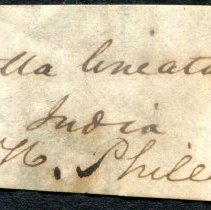 lla lineata
India
H. Phill